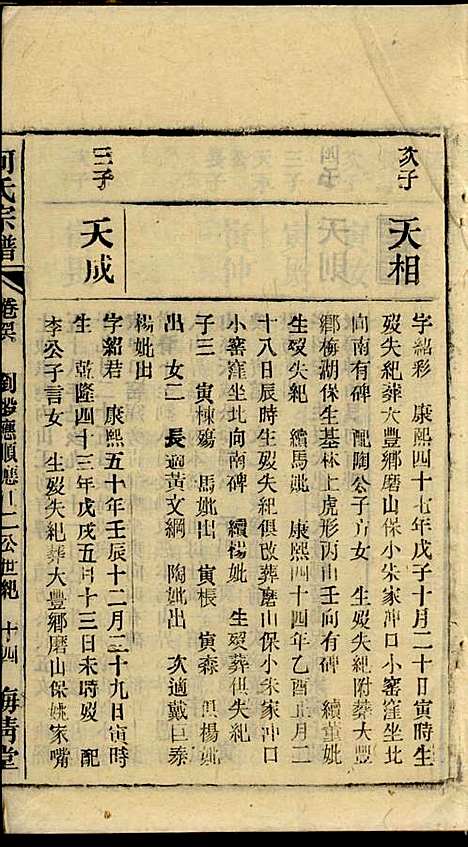 次子
天相
字紹彩 康熙四十七年戊子十月二十日寅時生
歿失紀葬大豐鄉磨山保小朱家冲口小窰窪坐北
向南有碑 配陶公子 女 生歿失紀附葬大豐
鄉梅湖保生基林上虎形丙山壬向有碑 續董妣
生歿失紀 續馬妣 康熙四十四年乙酉正月二
十八日辰時生歿失紀俱改葬磨山保小朱家冲口
小窰窪坐北向南碑 續楊妣 生歿葬俱失紀
子三 寅棟殤 馬妣出 寅棖 寅森 俱楊妣
出 女二 長適黃文綱 陶妣出 次適戴巨泰
楊妣出
三子
天成
字紹君 康熙五十年壬辰十二月二十九日寅時
生 乾隆四十三年戊戌五月十三日未時歿 配
李公子言女 生歿失紀葬大豐鄉磨山保姚家嘴
何氏宗譜 卷 劉 應順應 二公世紀 十四 海靑堂